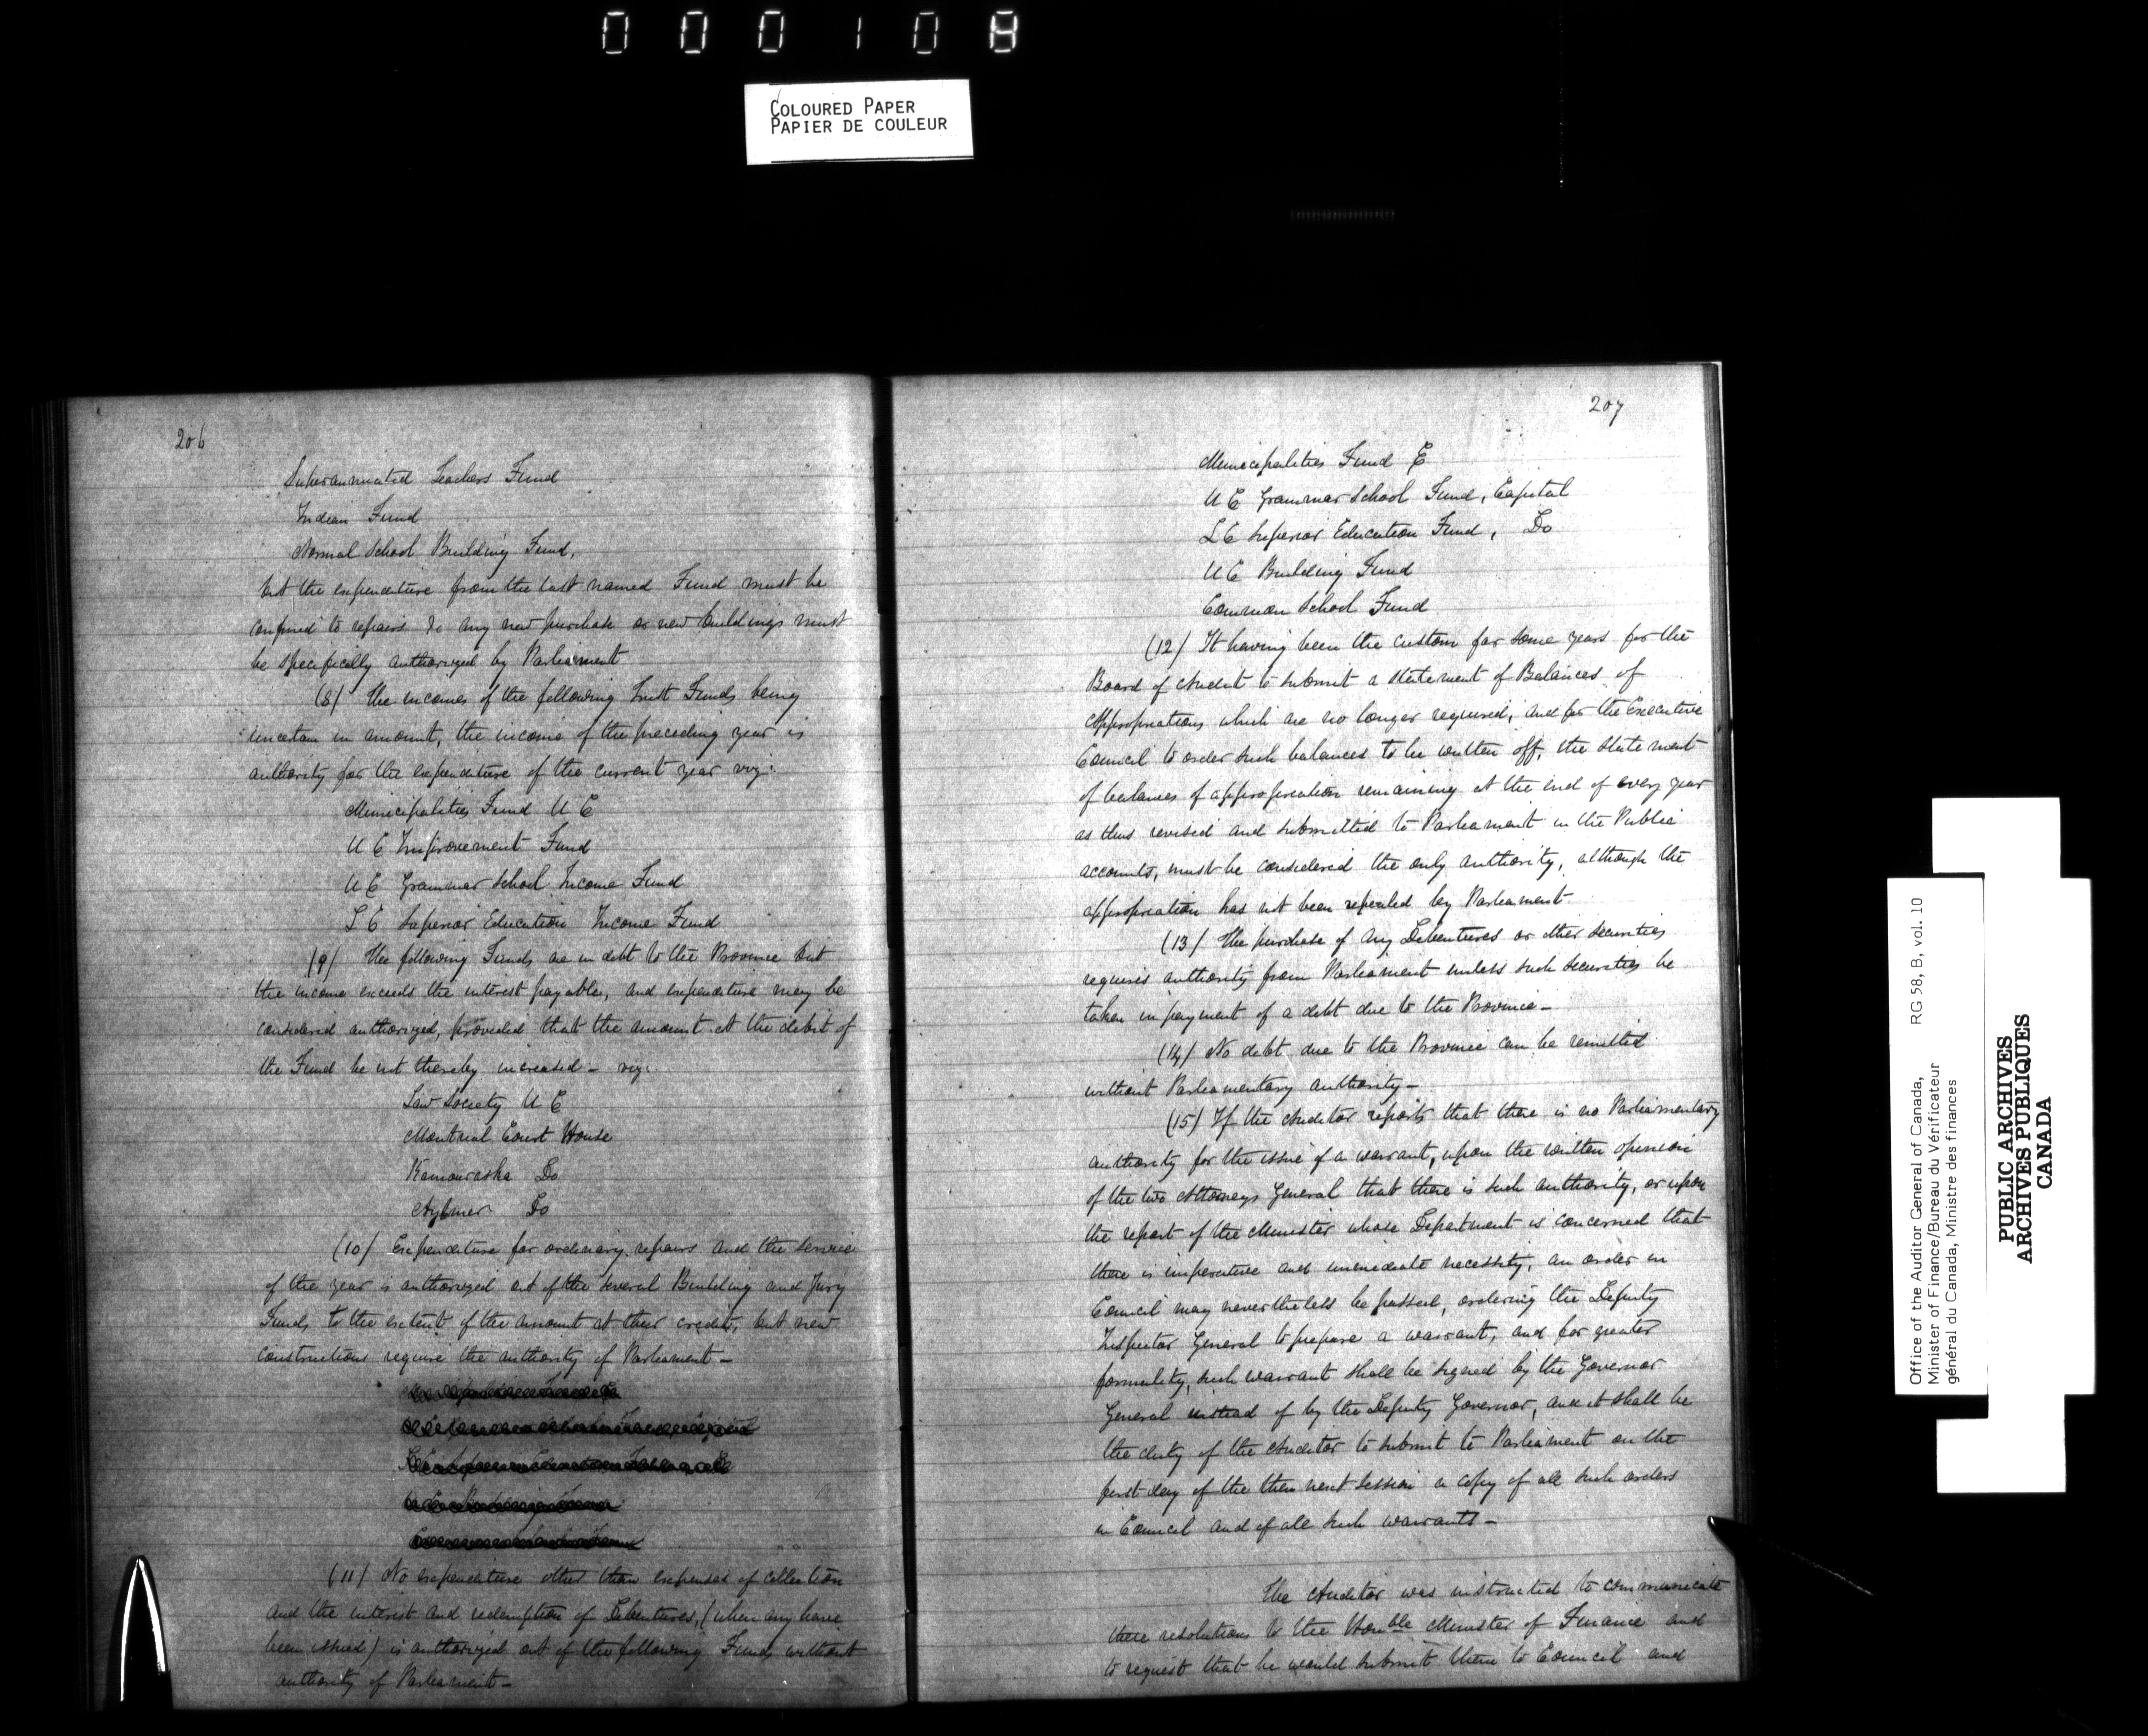 000108
COLOURED PAPER
PAPIER DE COULEUR
206
Superannuated Teachers Fund
Indian Fund
Normal School Building Fund,
but the expenditure from the last named Fund must be
confined to repairs &c any new purchase or new buildings must
be specifically authorized by Parliament
(8) The incomes of the following Trust Funds being
uncertain in amount, the income of the preceding year is
authority for the expenditure of the current year viz:
Municipalities Fund U C
U C Improvement Fund
U C Grammar School Income Fund
L C Superior Education Income Fund
(9) The following Funds are in debt to the Province but
the income exceeds the interest payable, and expenditure may be
considered authorized, provided that the amount at the debit of
the Fund be not thereby increased – viz:
Law Society U C
Montreal Court House
Kamouraska Do
Aylmer Do
(10) Expenditure for ordinary repairs and the service
of the year is authorized out of the several Building and Jury
Funds to the extent of the amount at their credit, but new
constructions require the authority of Parliament –
(11) No expenditure other than expenses of collection
and the interest and redemption of Debentures, (when any have
been issued) is authorized out of the following Funds without
authority of Parliament –
207
Municipalities Fund
U C Grammar School Fund, Capital
L C Superior Education Fund, Do
U C Building Fund
Common School Fund
(12) It having been the custom for some years for the
Board of Audit to submit a statement of Balances of
appropriations which are no longer required, and for the Executive
Council to order such balances to be written off, the statement
of balances of appropriation remaining at the end of every year
as thus revised and submitted to Parliament in the Public
accounts, must be considered the only authority, although the
appropriation has not been repealed by Parliament
(13) The purchase of any Debentures or other securities
requires authority from Parliament unless such securities be
taken in payment of a debt due to the Province –
(14) No debt due to the Province can be remitted
without Parliamentary authority –
(15) If the Auditor reports that there is no Parliamentary
authority for the issue of a warrant, upon the written opinion
of the two Attorneys General that there is such authority, or upon
the report of the Minister whose Department is concerned that
there is imperative and immediate necessity, an order in
Council may nevertheless be passed, ordering the Deputy
Inspector General to prepare a warrant, and for greater
formality, such warrant shall be signed by the Governor
General instead of by the Deputy Governor, and it shall be
the duty of the Auditor to submit to Parliament on the
first day of the then next session a copy of all such orders
in Council and of all such warrants –
The Auditor was instructed to communicate
these resolutions to the Honble Minister of Finance and
to request that he would submit them to Council and
Office of the Auditor General of Canada, RG 58, B, vol. 10
Minister of Finance/Bureau du Vérificateur
général du Canada, Ministre des finances
PUBLIC ARCHIVES
ARCHIVES PUBLIQUES
CANADA